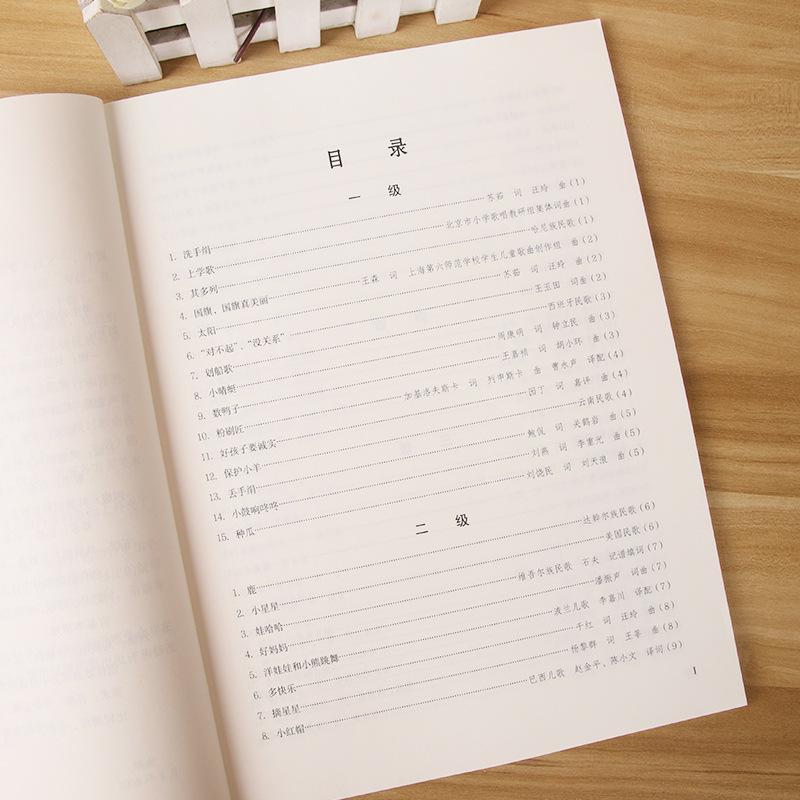 目 录
一 级
1. 洗手绢 苏茹 词 汪玲 曲(1)
2. 上学歌 北京市小学歌唱教研组集体词曲(1)
3. 其多列 哈尼族民歌(1)
4. 国旗，国旗真美丽 王森 词 上海第六师范学校学生儿童歌曲创作组 曲(2)
5. 太阳 苏茹 词 汪玲 曲(2)
6. “对不起”、“没关系” 王玉田 词曲(2)
7. 划船歌 西班牙民歌(3)
8. 小蜻蜓 周康明 词 钟立民 曲(3)
9. 数鸭子 王嘉桢 词 胡小环 曲(3)
10. 粉刷匠 加基洛夫斯卡 词 列申斯卡 曲 曹永声 译配(4)
11. 好孩子要诚实 园丁 词 嘉评 曲(4)
12. 保护小羊 云南民歌(4)
13. 丢手绢 鲍侃 词 关鹤岩 曲(5)
14. 小鼓响咚咚 刘燕 词 李重光 曲(5)
15. 种瓜 刘饶民 词 刘天浪 曲(5)
二 级
1. 鹿 达斡尔族民歌(6)
2. 小星星 美国民歌(6)
3. 娃哈哈 维吾尔族民歌 石夫 记谱填词(7)
4. 好妈妈 潘振声 词曲(7)
5. 洋娃娃和小熊跳舞 波兰儿歌 李嘉川 译配(7)
6. 多快乐 于红 词 汪玲 曲(8)
7. 摘星星 杨黎群 词 王莘 曲(8)
8. 小红帽 巴西儿歌 赵金平、陈小文 译词(9)
I